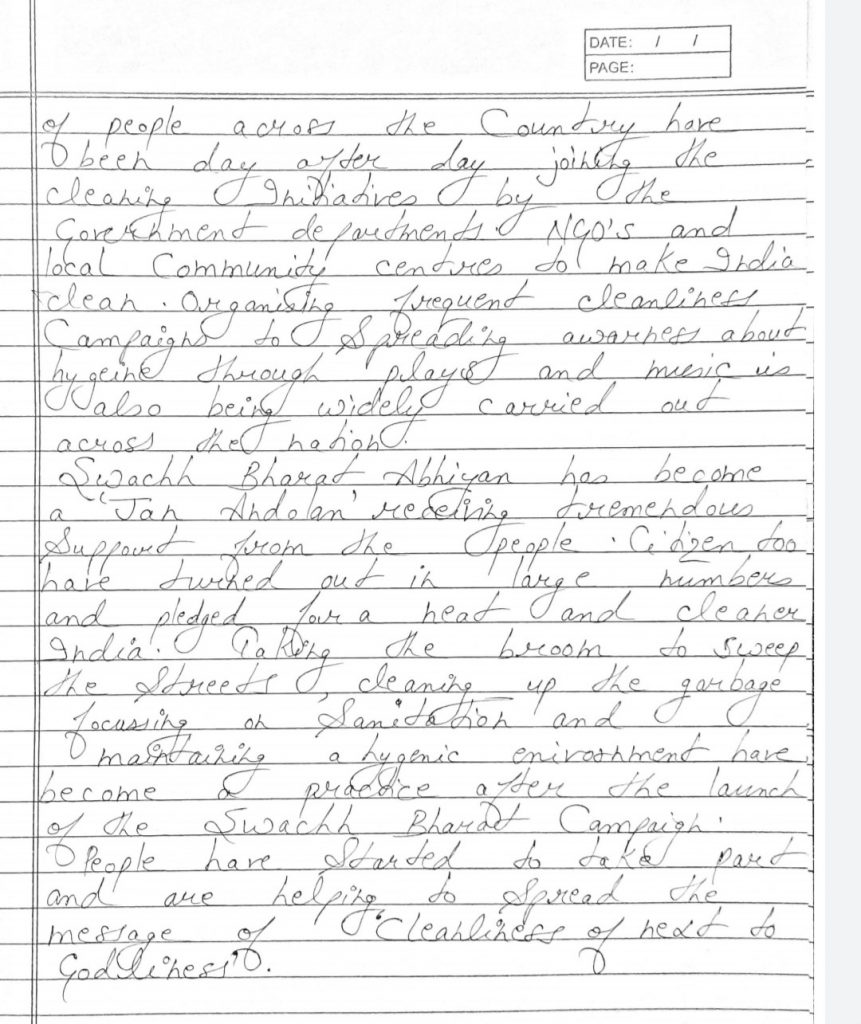 DATE: / /
PAGE:
of people across the Country have
been day after day joining the
cleaning Initiatives by the
Government departments. NGO's and
local Community centres to make India
clean. Organising frequent cleanliness
Campaigns to Spreading awarness about
hygeine through plays and music is
also being widely carried out
across the nation.
Swachh Bharat Abhiyan has become
a 'Jan Andolan' receiving tremendous
Support from the people. Citizen too
have turned out in large numbers
and pledged for a neat and cleaner
India. Taking the broom to sweep
the Streets, cleaning up the garbage
focussing on Sanitation and
maintaining a hygenic enivornment have
become a practice after the launch
of the Swachh Bharat Campaign.
People have Started to take part
and are helping to Spread the
message of "Cleanliness of next to
Godliness".